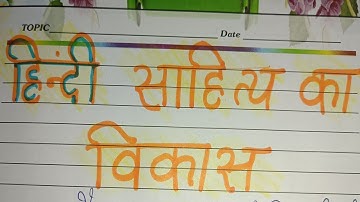 TOPIC Date
हिंन्दी साहित्य का
विकास